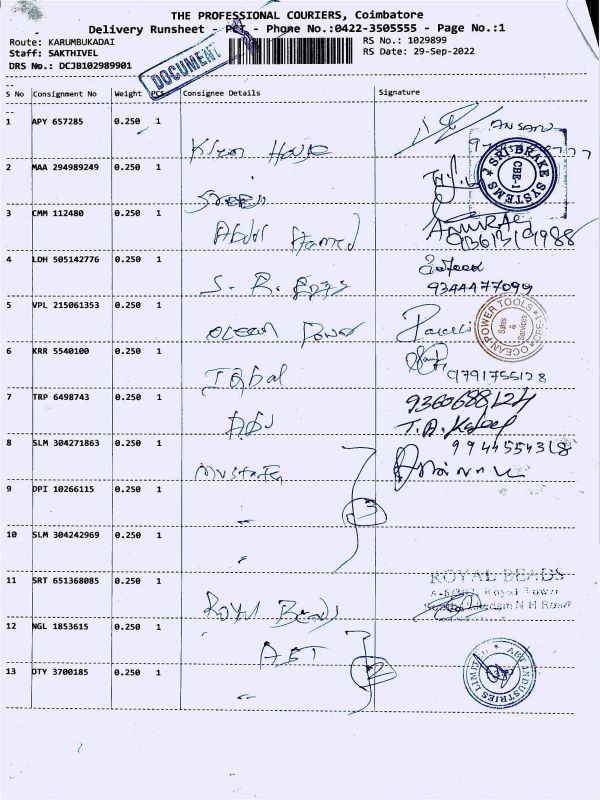 THE PROFESSIONAL COURIERS, Coimbatore
Delivery Runsheet - PCT - Phone No.:0422-3505555 - Page No.:1
Route: KARUMBUKADAI RS No.: 1029899
Staff: SAKTHIVEL RS Date: 29-Sep-2022
DRS No.: DCJB102989901
DOCUMENT
S No Consignment No Weight PCS Consignee Details Signature
1 APY 657285 0.250 1
House
2 MAA 294989249 0.250 1
SRI BRAKE SYSTEMS
CBE-1
3 CMM 112480 0.250 1
Abdul Hamed
9361319988
4 LDH 505142776 0.250 1
S. R.
9344477099
5 VPL 215061353 0.250 1
Ocean Power
OCEAN POWER TOOLS CBE-1
Sales & Services
6 KRR 5540100 0.250 1
Iqbal
9791755128
7 TRP 6498743 0.250 1
Abu
9360688124
8 SLM 304271863 0.250 1
Mustafa
9944554318
9 DPI 10266115 0.250 1
3
10 SLM 304242969 0.250 1
11 SRT 651368085 0.250 1
Royal Beads
ROYAL BEADS
Royal Town
N H Road
12 NGL 1853615 0.250 1
ABT
2
13 OTY 3700185 0.250 1
ABT INDUSTRIES LIMITED